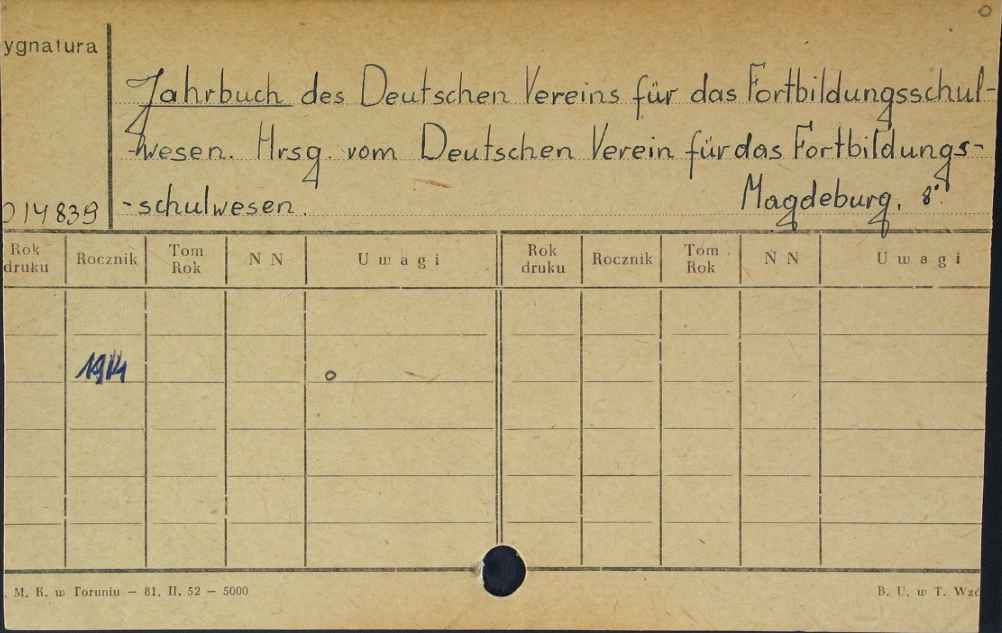 ygnatura
Jahrbuch des Deutschen Vereins für das Fortbildungsschul-
-wesen. Hrsg. vom Deutschen Verein für das Fortbildungs-
014839 -schulwesen. Magdeburg, 8°.
Rok druku Rocznik Tom Rok N N Uwagi Rok druku Rocznik Tom Rok N N Uwagi
1914
. M. K. w Toruniu — 81. II. 52 — 5000 B. U. w T. Wzó